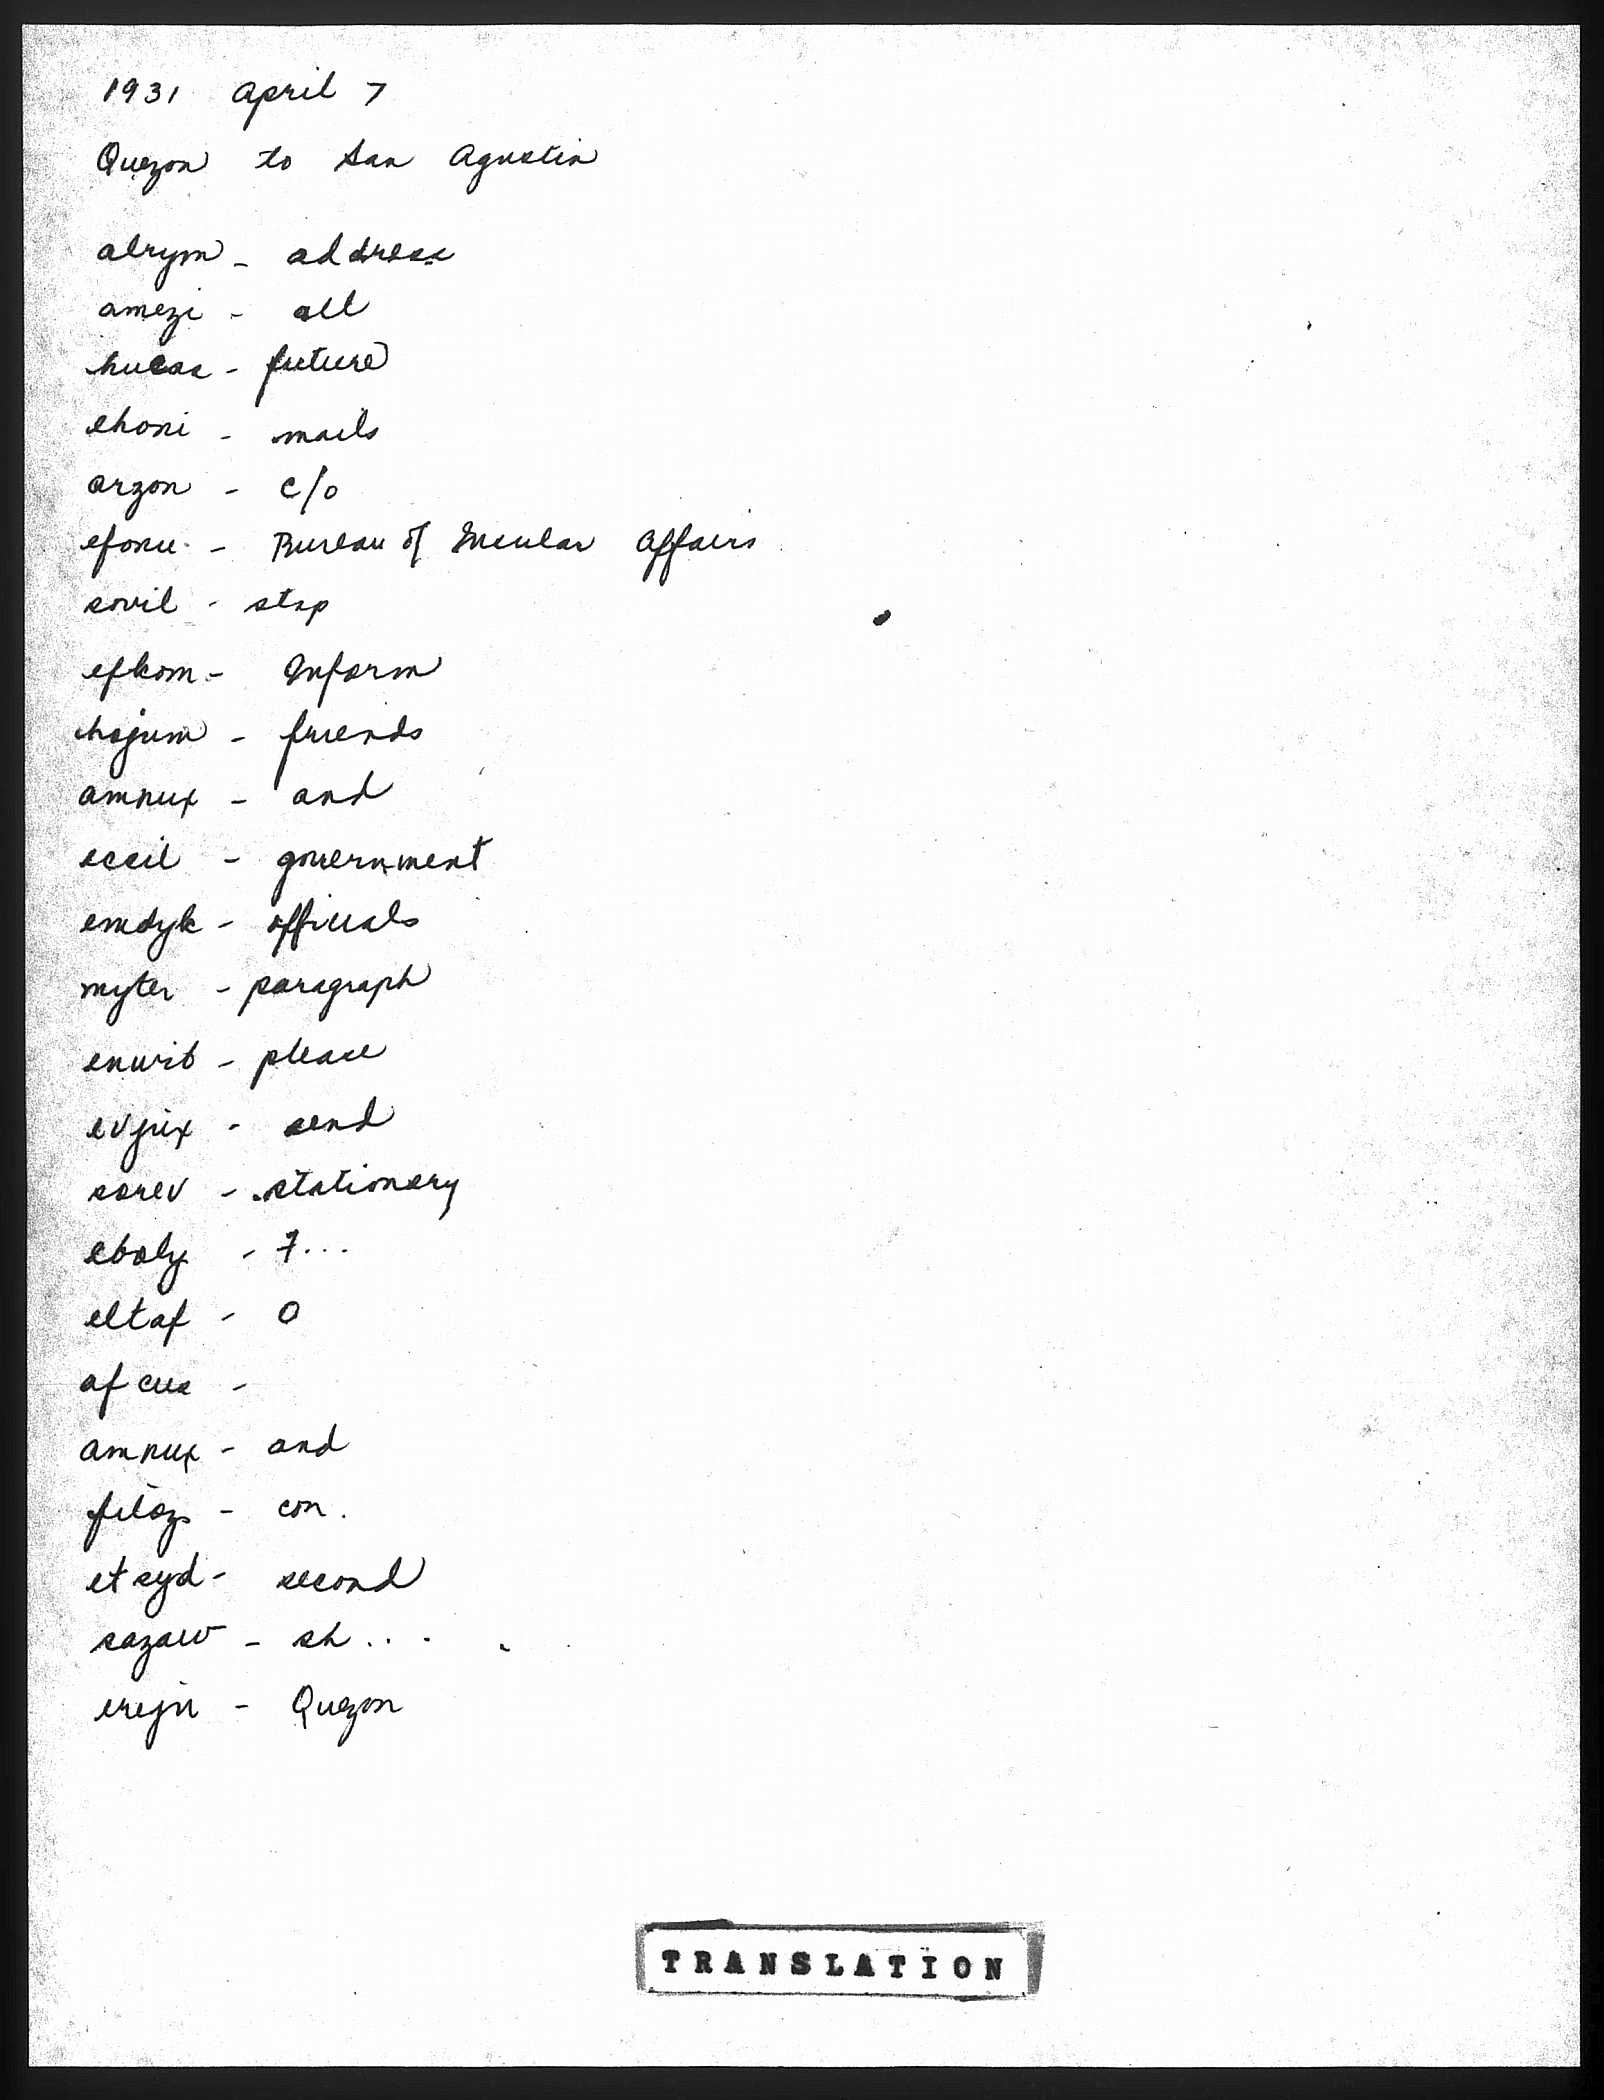 1931 April 7
Quezon to San Agustin
alrym - address
amezi - all
hucas - future
ehoni - mails
arzon - c/o
efonu - Bureau of Insular Affairs
sovil - stop
efkom - Inform
hojum - friends
amnux - and
eccil - government
emdyk - officials
myter - paragraph
enwib - please
evjix - send
sorev - stationery
eboly - 7...
eltaf - 0
afcus -
amnux - and
filoz - con.
etsyd - second
sazaw - sh...
erejn - Quezon
TRANSLATION